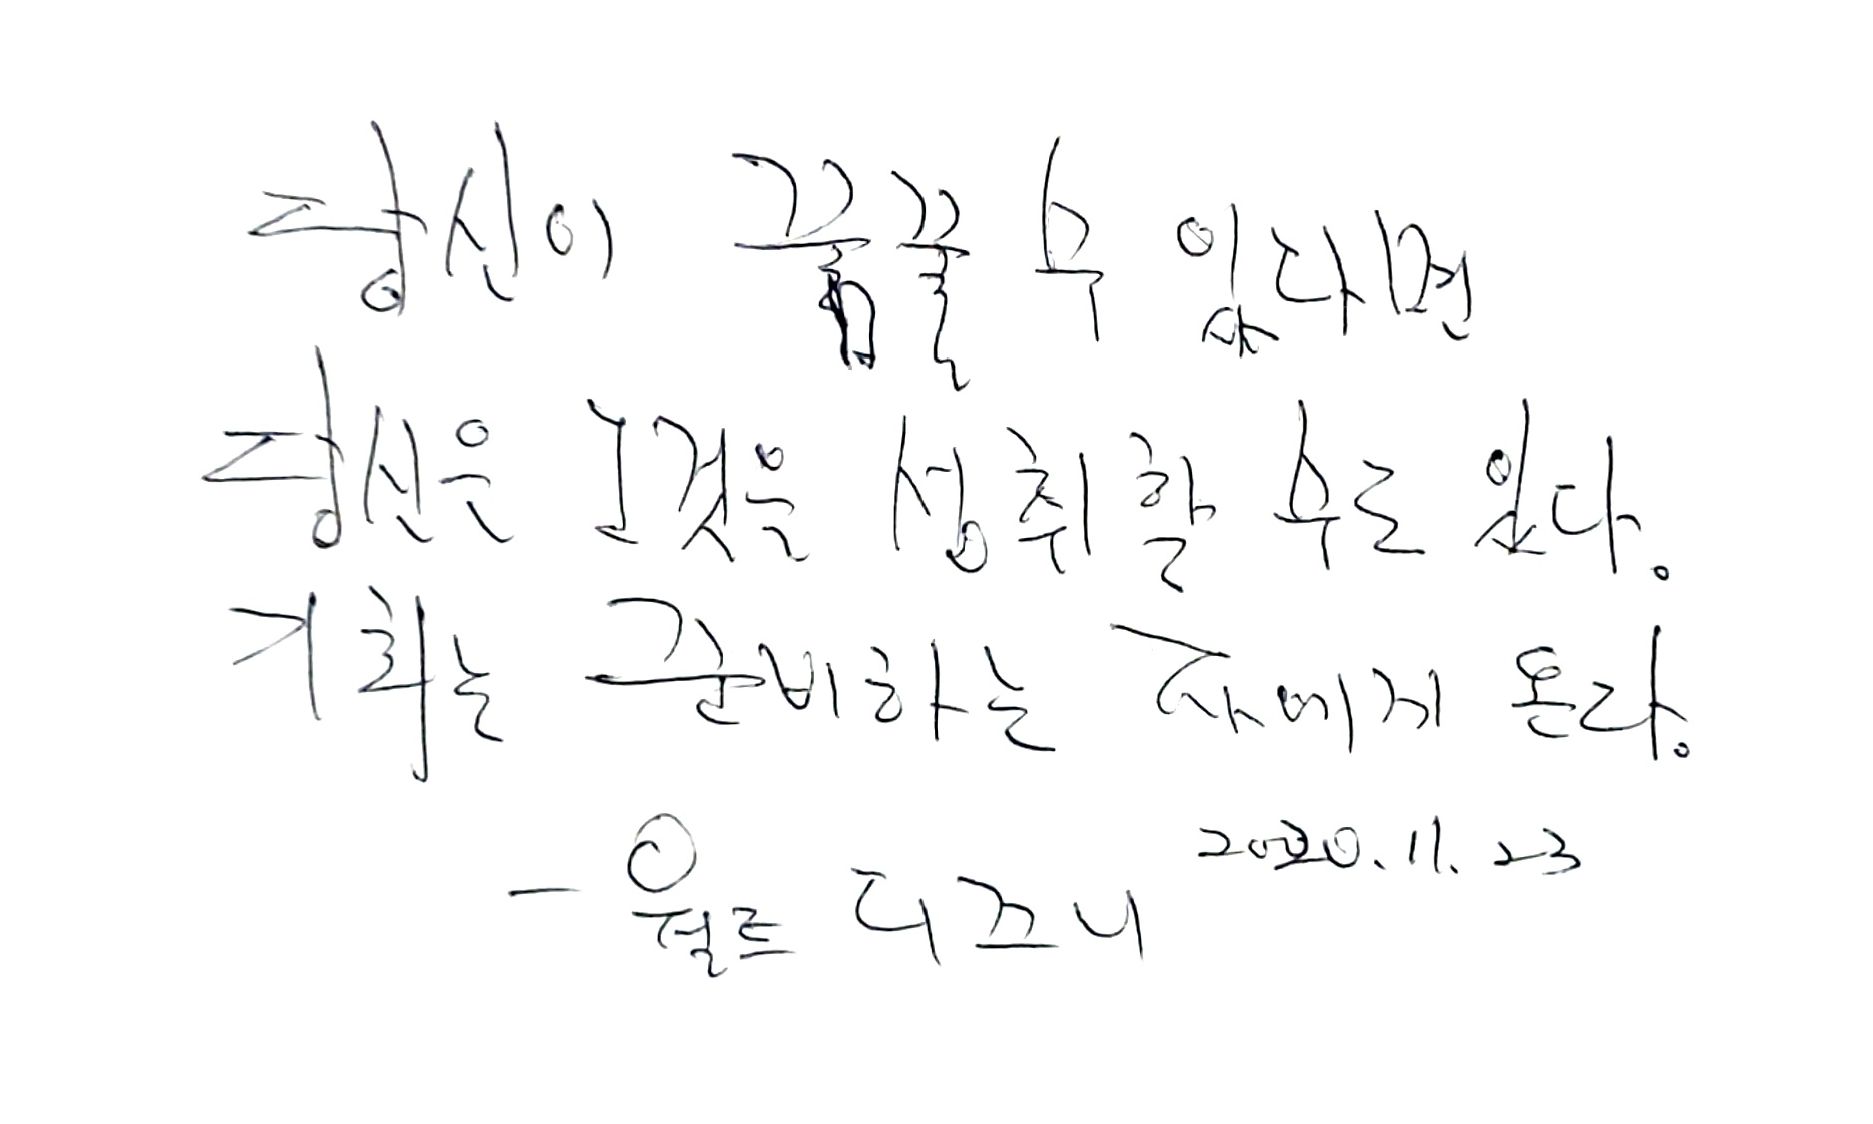 당신이 꿈꿀 수 있다면
당신은 그것을 성취할 수도 있다.
기회는 준비하는 자에게 온다.
- 월트 디즈니 2020. 11. 23